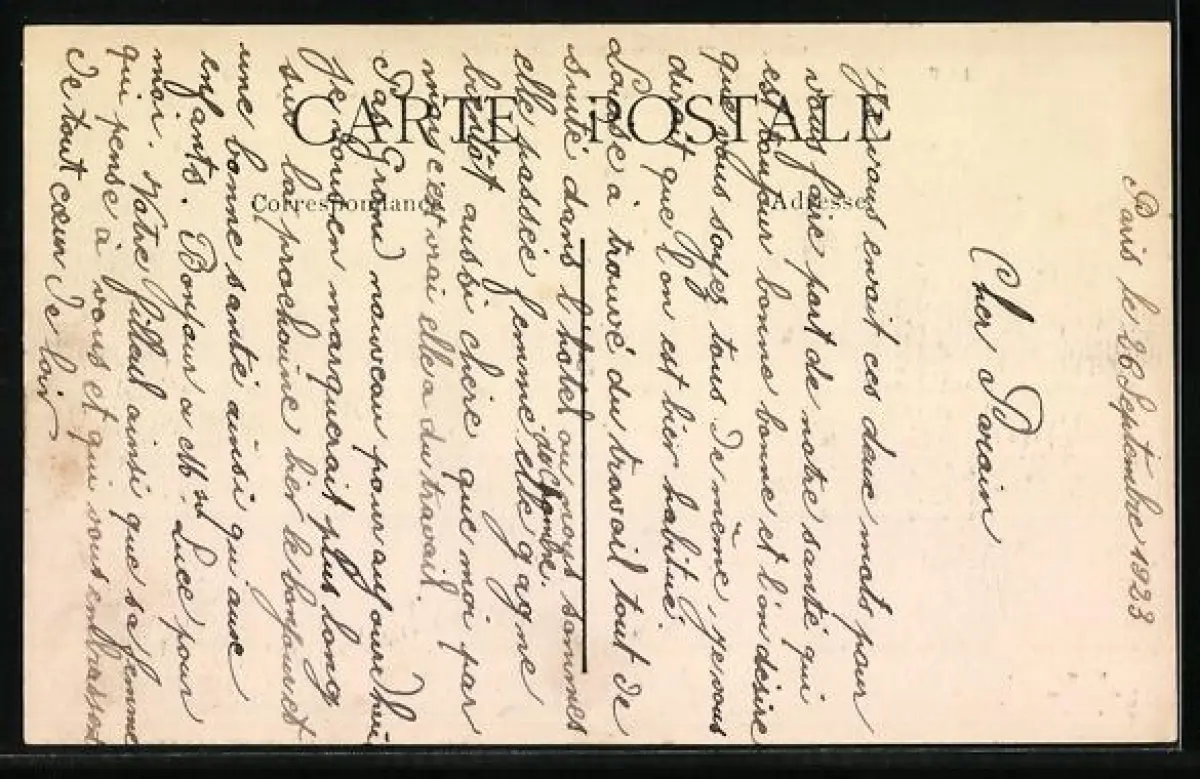 CARTE POSTALE
Correspondance
Adresse
Paris le 26 Septembre 1923
Cher Parain
Je vous envoit ces deux mots pour
vous faire part de notre santé qui
est toujour bonne bonne et l'on désire
que vous soyez tous De même, je vous
dirait que l'on est bien habitué
Louise à trouvé du travail tout de
suite dans l'hotel ou nous sommes
elle passée femme de chambre. elle gagne
bientôt aussi chère que moi par
mois c'est vrai elle a du travail.
Pas Grand nouveau pour aujourd'hui
Je vous en marquerait plus long
sur la prochaine bien le bonjour et
une bonne santé ainsi qu'aux
enfants. Bonjour a Luce pour
moi. Votre filleul ainsi que sa femme
qui pense à vous et qui vous embrassent
De tout cœur De loin